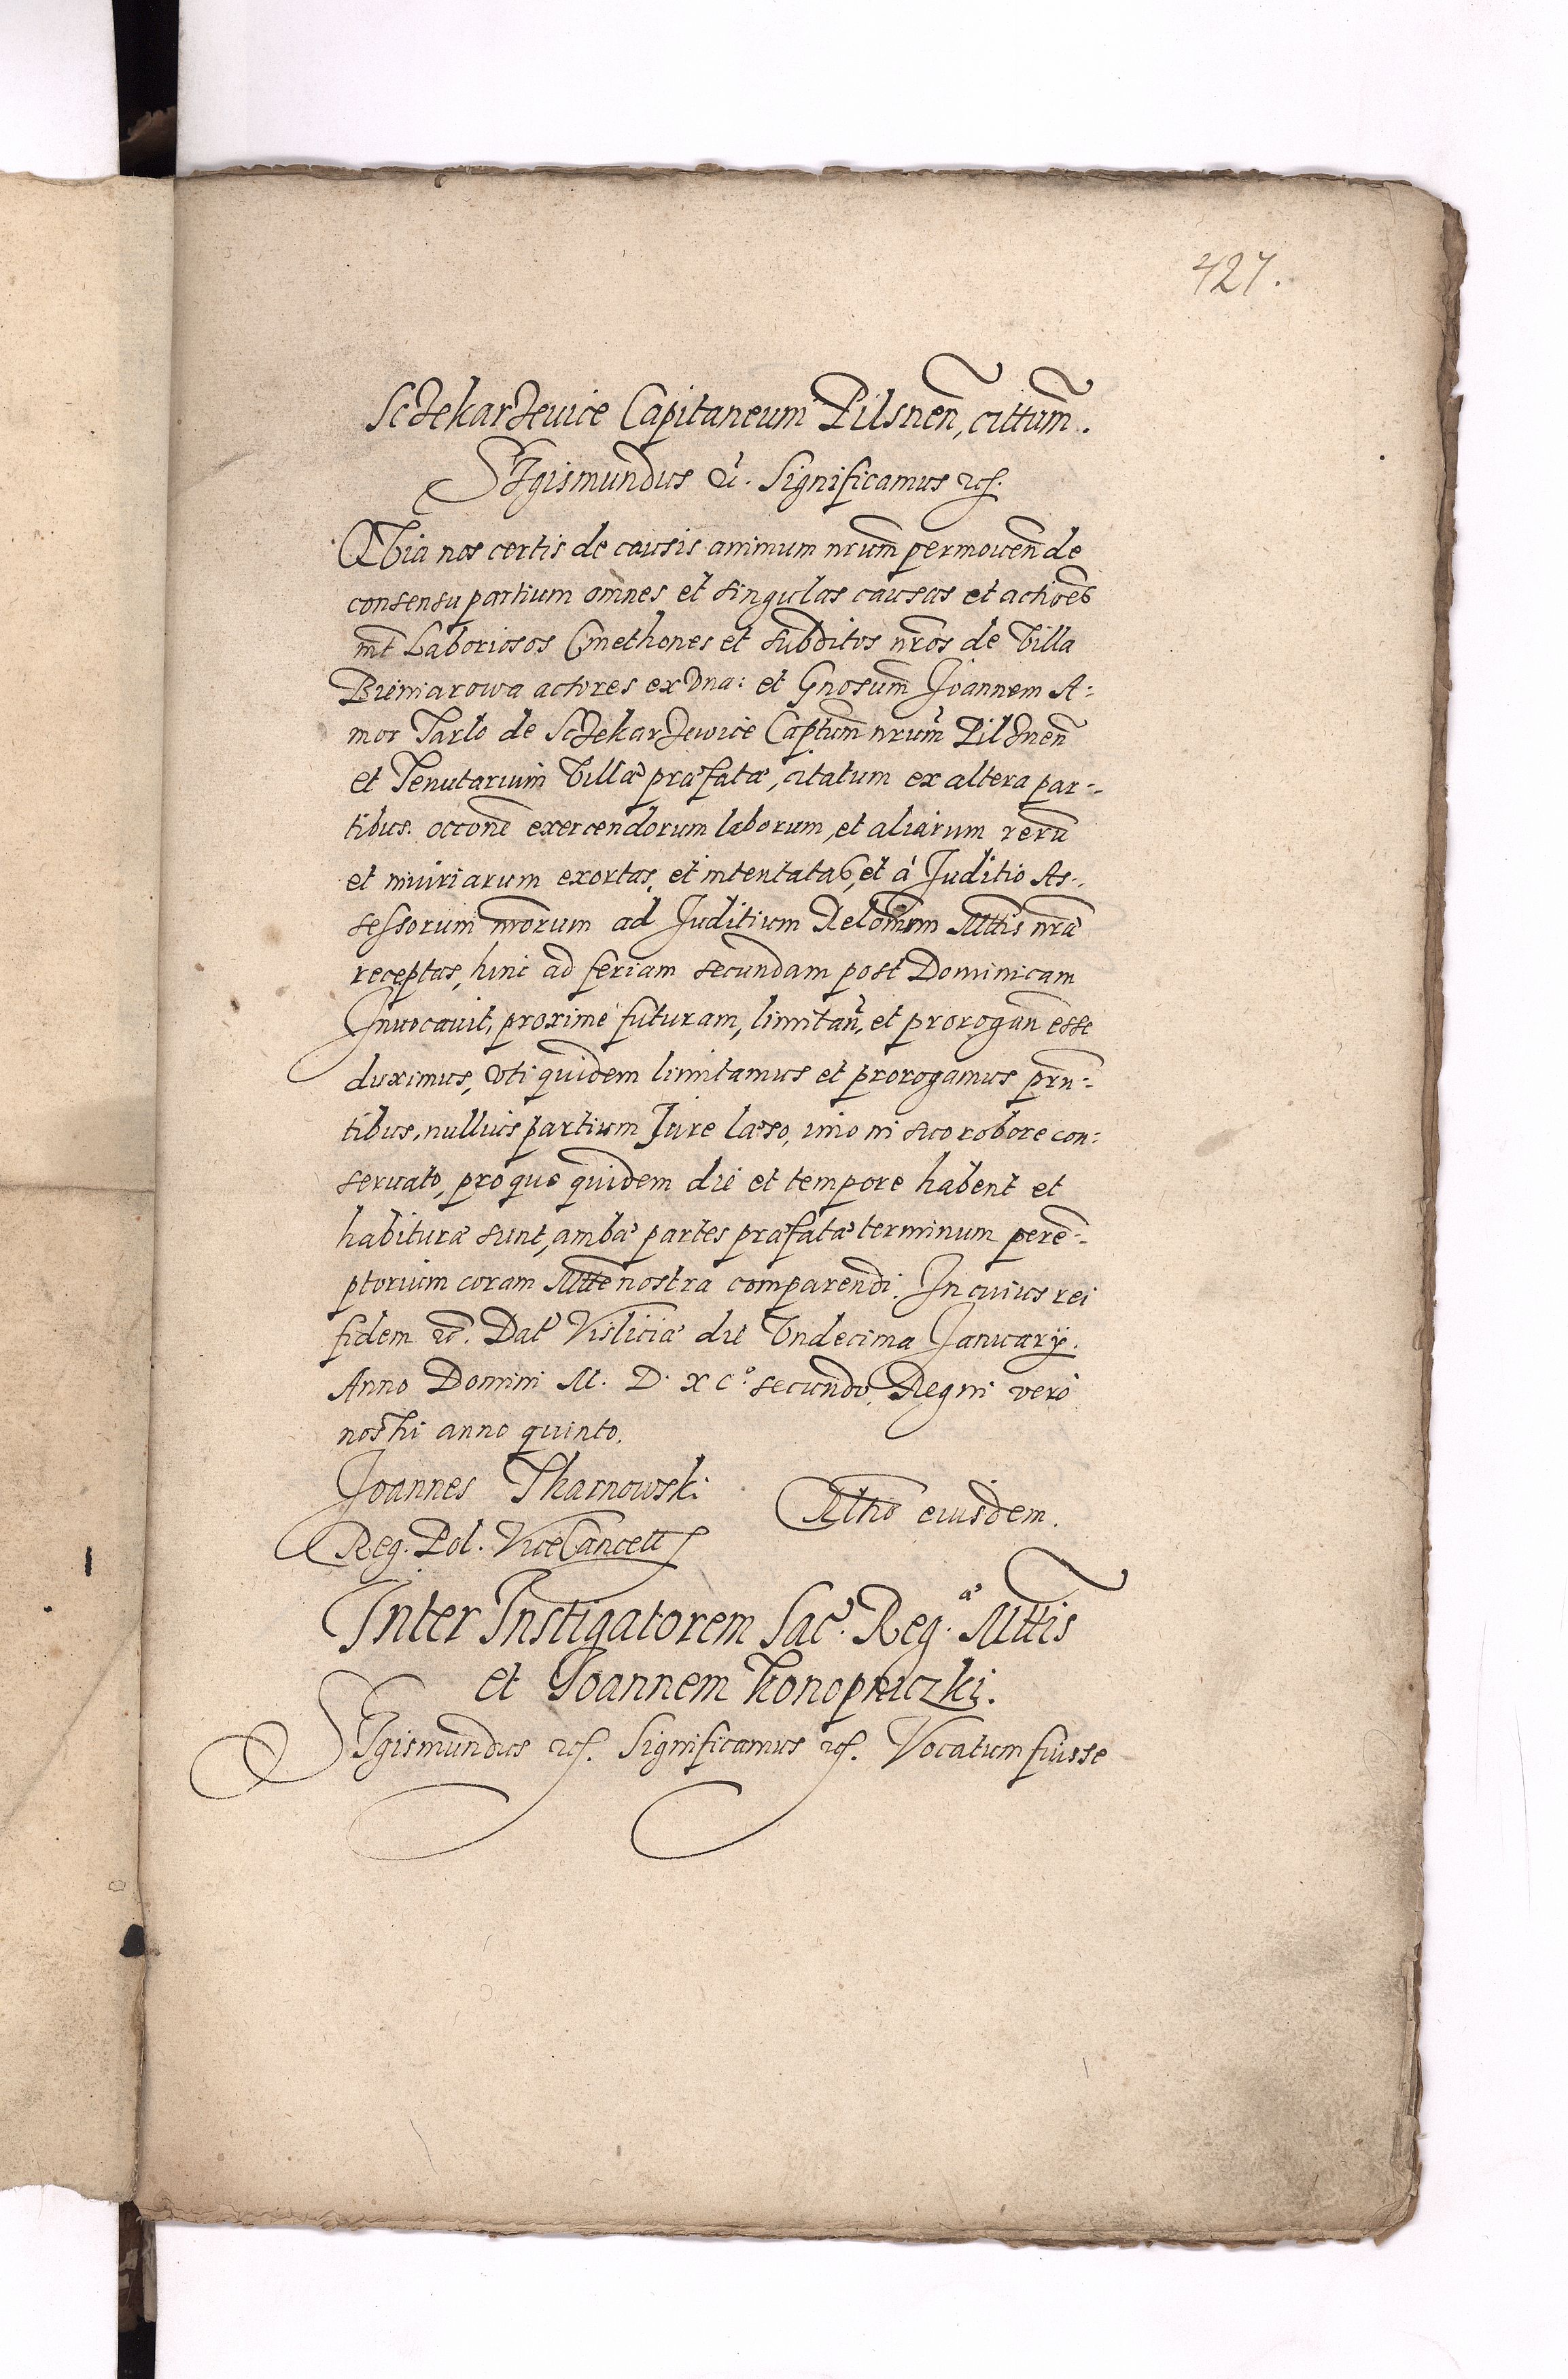 427.
SczekarJevice Capitaneum Pilsnen̄, cittum̄.
SIgismundus &. Significamus etc.
QVia nos certis de causis animum nrum̄ permoven̄ de
consensu partium om̄nes et singulas causas et actio͞es
int̄ Laboriosos Cmethones et subditos nr̄os de Villa
Bieniarowa actores ex vna: et Gn̄osum Joannem A:
mor Tarlo de SczekarJewice Captum̄ nrum̄ Pilznen̄
et Tenutarium Villæ præfatæ, citatum ex altera par-
tibus. occon̄e exercendorum laborum, et aliarum rerū
et iniuriarum exortas, et intentatas, et à Juditio As-
sessorum nr̄orum ad Juditium Relon̄um Mttis nr̄æ
receptas, hinc ad feriam secundam post Dominicam
Invocavit, proximè futuram, limitan̄, et prorogan̄ esse
duximus, vti quidem limitamus et prorogamus prn̄-
tibus, nullius partium Jure læso, imo in suo robore con:
servato, pro quo quidem die et tempore habent et
habituræ sunt, ambæ partes præfatæ terminum perē-
ptorium coram Mtte nostra comparendi. In cuius rei
fidem etc. Dat̄ Visliciæ die Vndecima Januarÿ.
Anno Domini M. D. XCº. secundo, Regni verò
nostri anno quinto.
Joannes Tharnowski
Reg. Pol. ViceCancell
R̄ltio eiusdem.
Inter Instigatorem Sac. Reg.æ Mttis
et Joannem Konopniczki.
SIgismundus etc. Significamus etc. Vocatum fuisse